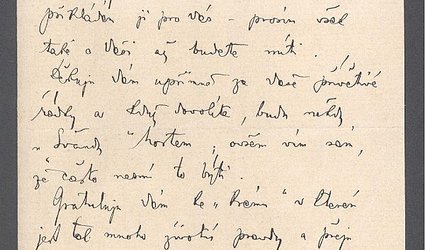 přikládám ji pro Vás – prosím však
také o Vaši až budete míti.
Děkuji Vám upřímně za Vaše přívětivé
řádky a když dovolíte, budu někdy
u Švandy "hostem", ovšem vím sám,
že často nesmí to býti.
Gratuluji Vám ke "
jest tak mnoho životní pravdy a přeji